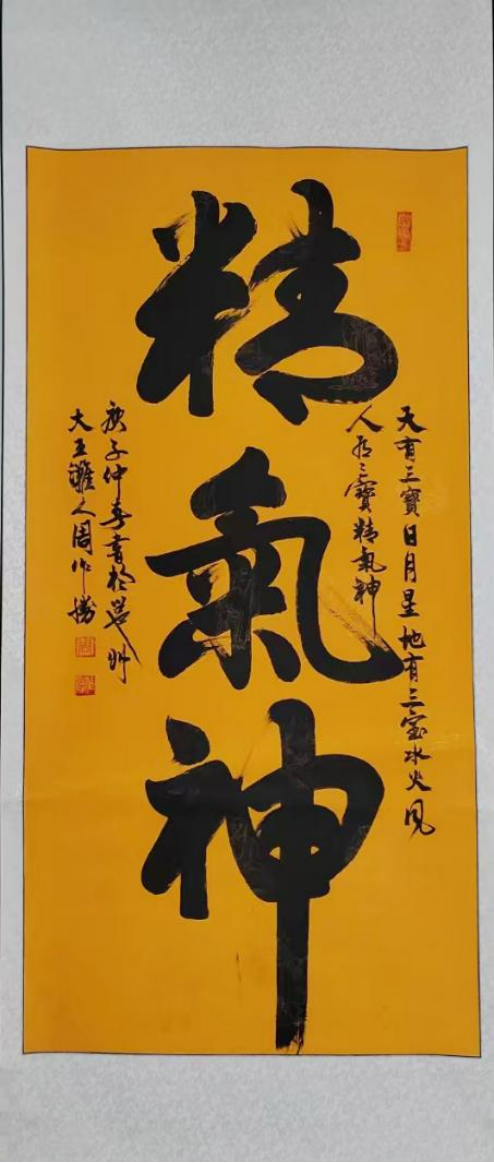 精氣神
天有三寶日月星地有三宝水火風
人有三寶精氣神
庚子仲春書於
大王灘人周作勝